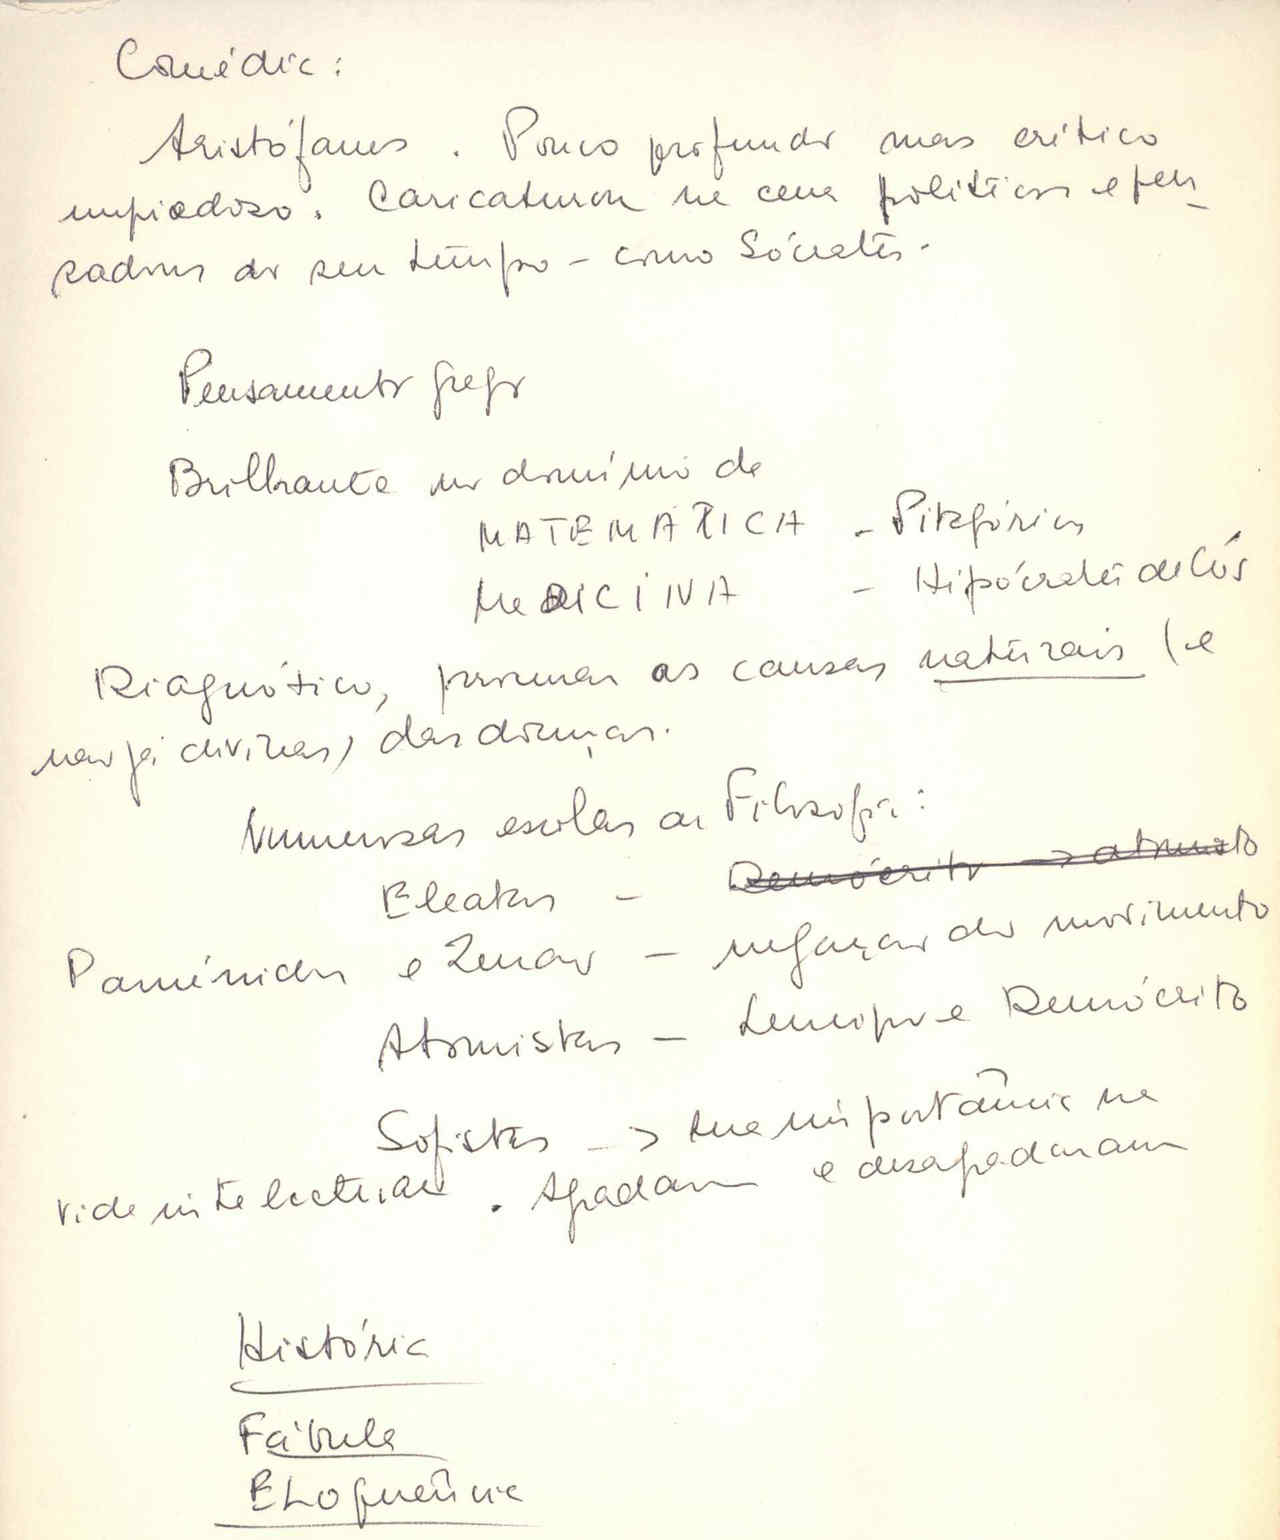 Comédia:
Aristófanes. Pouco profundo mas crítico
impiedoso. Caricaturou na cena políticos e pen-
sadores do seu tempo - como Sócrates.
Pensamento grego
Brilhante no domínio da
MATEMÁTICA - Pitagóricos
MEDICINA - Hipócrates de Cós
Diagnóstico, procurar as causas naturais (e
não já divinas) das doenças.
Numerosas escolas de Filosofia:
Eleatas - Demócrito → atomisto
Parménides e Zenão - negação do movimento
Atomistas - Leucipo e Demócrito
Sofistas → sua importância na
vida intelectual. Agradaram e desagradaram
História
Fábula
Eloquência